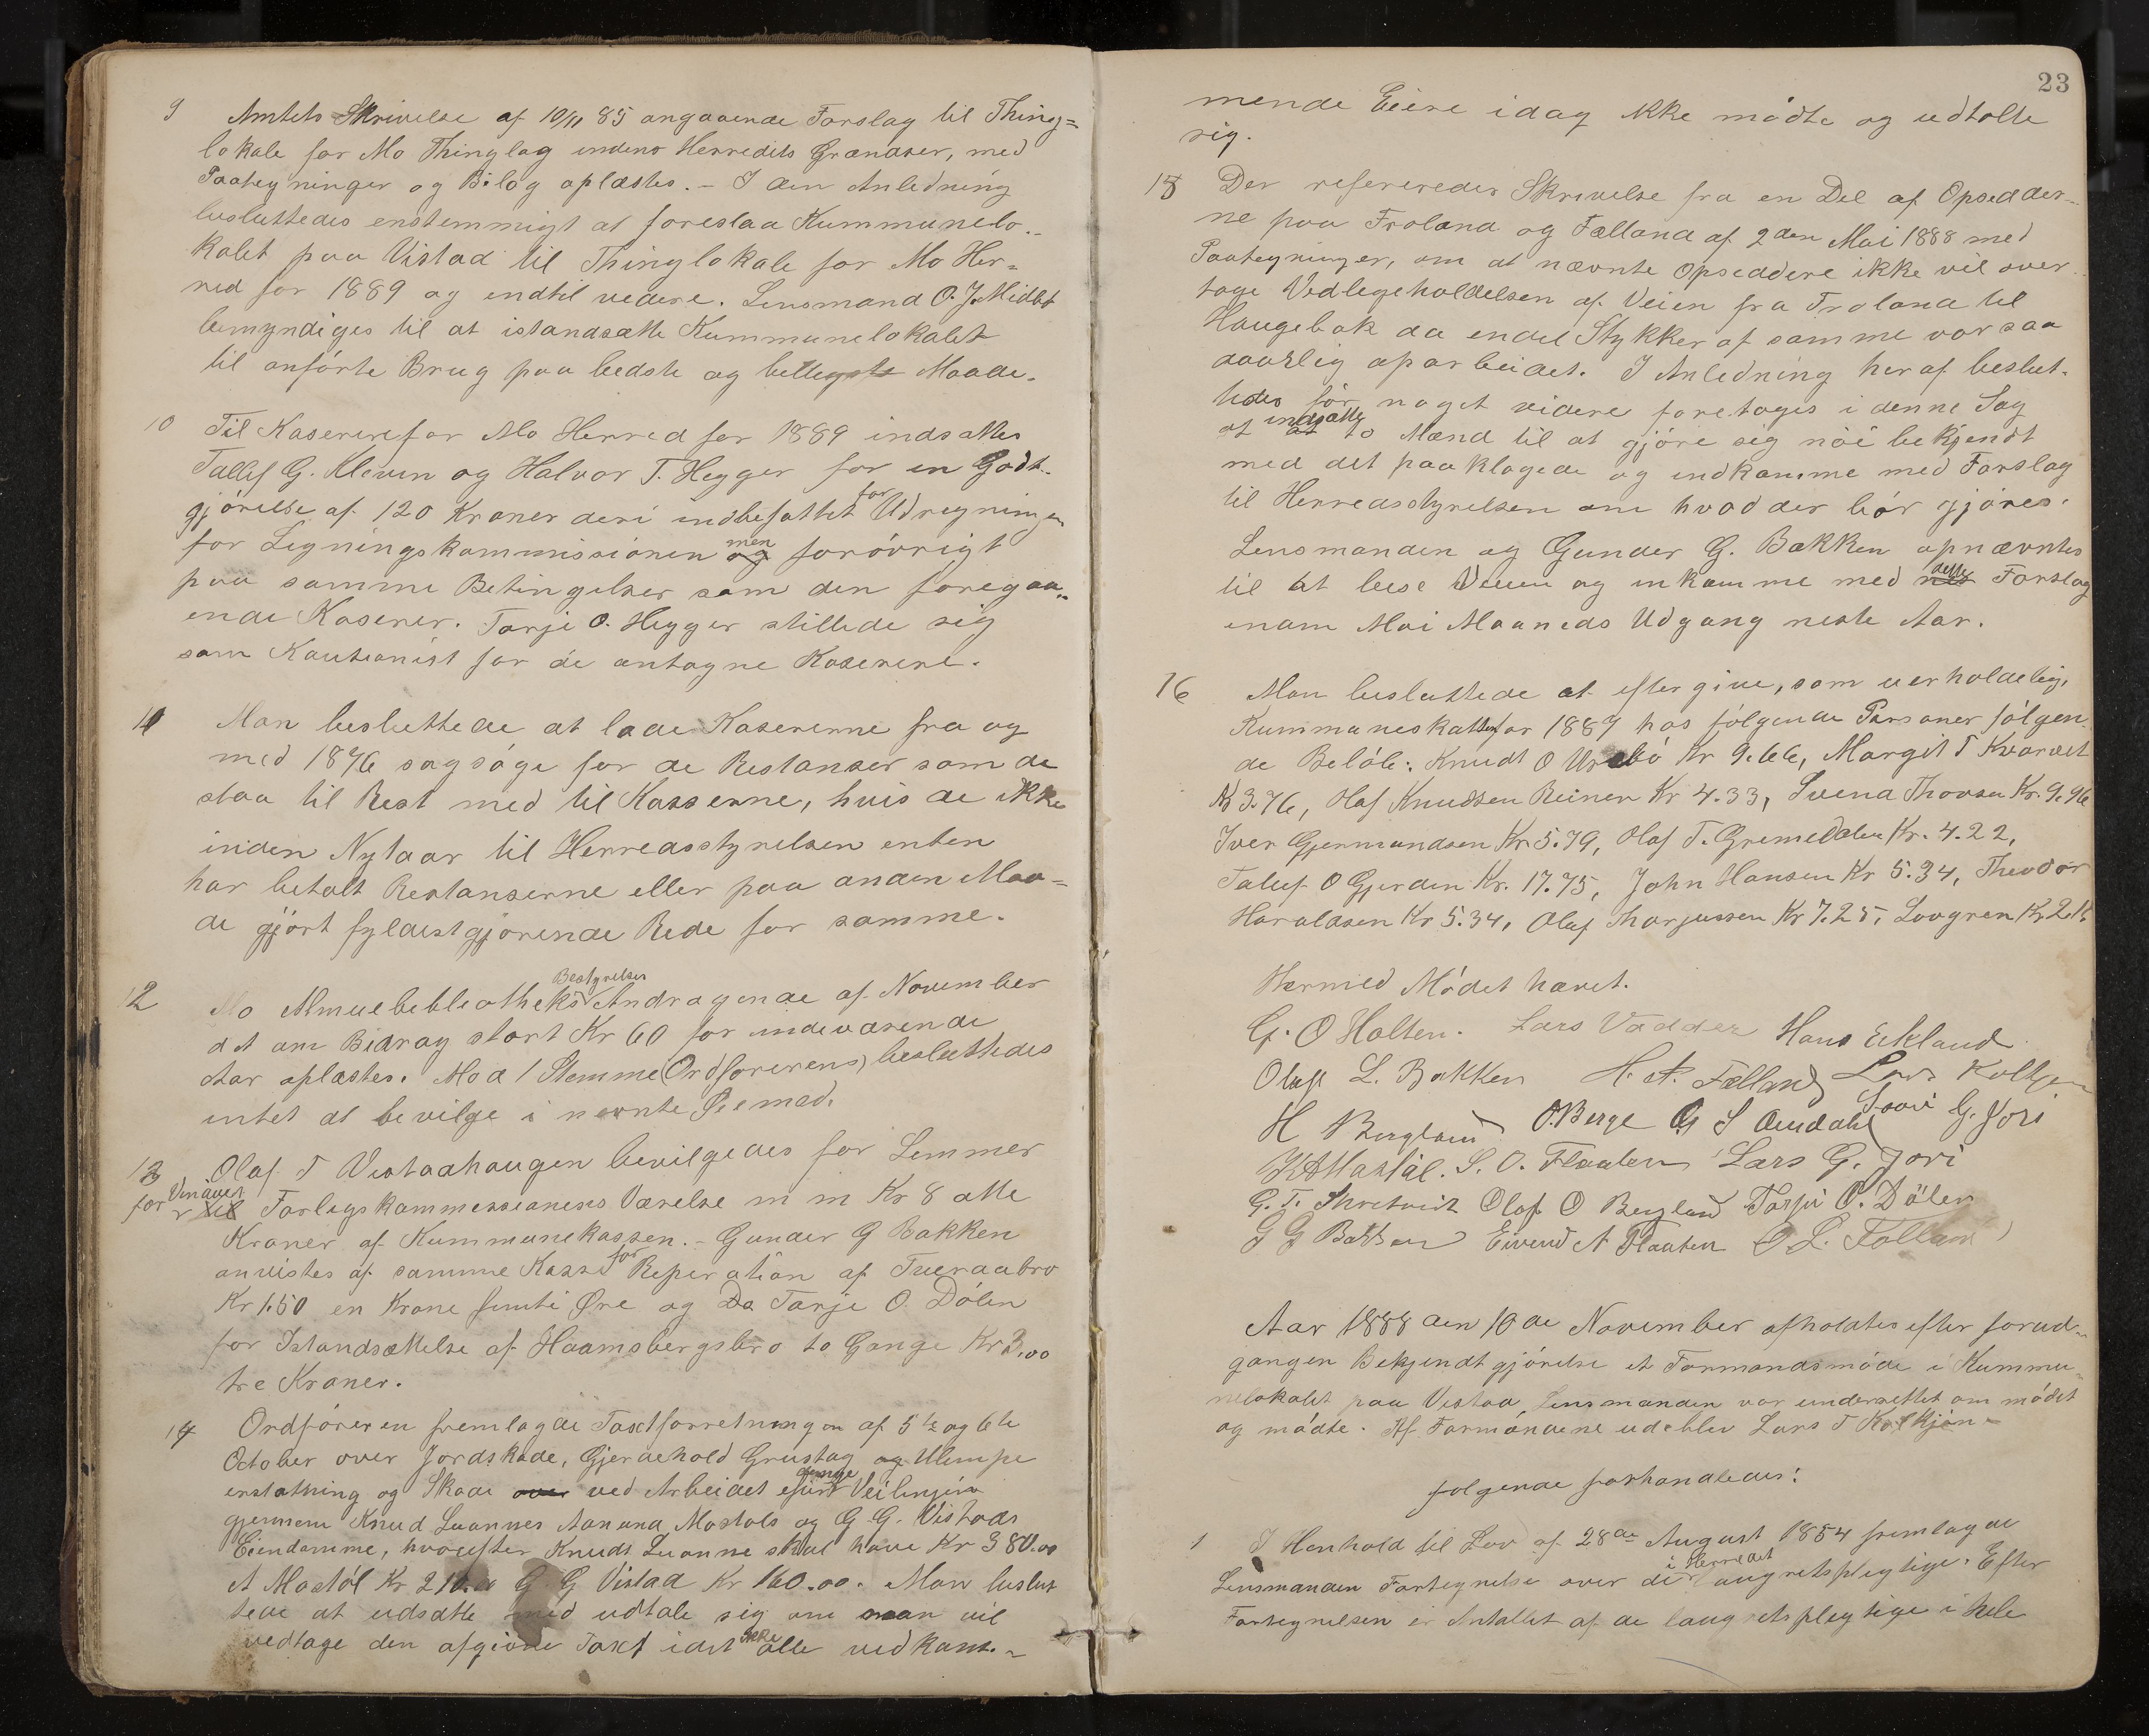 9 Amtets Skrivelse af 10/11 85 angaaende Forslag til Thing=
lokale for Mo Thinglag indens Herredits Grændser, med
Paategninger og Bilag oplæstes. - I den Anledning
besluttedes enstemmigt at foreslaa Kummunelo-
kalet paa Vistad til Thinglokale for Mo Her=
red for 1889 og indtil vedere. Lensmand O. J. Midbø
bemyndiges til at istandsætte Kummunelokalet
til anførte Brug paa bedste og bellegste Maade.
10 Til Kaserere for Mo Herred for 1889 indsattes
Tallef G. Kleven og Halvor T. Hegger for en Godt-
gjørelse af 120 Kroner deri indbefattet for Udregningen
for Ligningskommissionen men forøvrigt
paa samme Betingelser som den foregaa-
ende Kaserer. Tarje O. Hegger stillede sig
som Kautionist for de antagne Kaserere.
11 Man besluttede at lade Kasererne fra og
med 1876 sagsøge for de Restanser som de
staa til Rest med til Kasserne, hvis de ikke
inden Nytaar til Herredsstyrelsen enten
har betalt Restanserne eller paa anden Maa-
de gjørt fyldestgjørende Rede for samme.
12 Mo Almuebebleotheks Bestyrelses Andragende af November
d A om Bidrag stort Kr 60 for indeværende
Aar oplæstes. Mod 1 Stemme (Ordførerens) besluttedes
intet at bevilge i nevnte Øiemed.
13 Olaf T Vistadhaugen bevilgedes for Lemmer
for Forligskommessionens Værelse m m Kr 8 otte
Kroner af Kummunekassen. - Gunder G Bakken
anvistes af samme Kasse for Reperation af Tveraabro
Kr 1.50 en Krone femti Øre og Do Tarje O. Dølen
for Istandsættelse af Haamsbergsbro to Gange Kr 3.00
tre Kroner.
14 Ordføreren fremlagde Taxtforretningen af 5te og 6te
October over Jordskade, Gjerdehold Grustag og Ulempe
erstatning og Skade ved Arbeidet Veilinjen
gjennem Knud Luannes Aanund Mostøls og G. G. Vistads
Eiendomme, hvorefter Knudt Luanne skal have Kr 380.00
A Mostøl Kr 210.00 G G Vistad Kr 160.00. Man beslut
tede at udsætte med udtale sig om man vil
vedtage den afgivne Taxt idet ikke alle vedkom-
23
mende Eiere idag ikke mødte og udtalte
sig.
15 Der refereredes Skrivelse fra en Del af Opsedder-
ne paa Froland og Fælland af 2den Mai 1888 med
Paategninger, om at nævnte Opseddere ikke vil over
tage Vedlegeholdelsen af Veien fra Froland til
Haugebak da endel Stykker af samme var saa
daarlig oparbeidet. I Anledning heraf beslut-
tedes før noget videre foretages i denne Sag
at indsætte to Mænd til at gjøre sig nøi bekjendt
med det paaklagede og indkomme med Forslag
til Herredsstyrelsen om hvad der bør gjøres.
Lensmanden og Gunder G. Bakken opnævntes
til at bese Veien og inkomme med dette Forslag
inom Mai Maaneds Udgang neste Aar.
16 Man besluttede at eftergive, som uerholdelig,
Kummuneskatten for 1887 hos følgende Personer følgen-
de Beløb: Knudt O Urebø Kr 9.66, Margit T Kvarvet
Kr 3.76, Olaf Knudsen Reinen Kr 4.33, Svend Thovsen Kr. 9.96
Iver Gjermundsen Kr 5.79, Olaf T. Gremedalen Kr. 4.22,
Talef O Gjerden Kr. 17.75, John Hansen Kr 5.34, Theodor
Haraldsen Kr 5.34, Olaf Tharjussen Kr 7.25, Lovgren Kr 2.
Hermed Mødet hævet.
G. O Holten. Lars Vadder Hans Eekland
Oluf L. Bakken H. A. Fælland Lars
H Bergland O. Berge G S Omdahl G. Jori
S. O. Flaaten Lars G. Jori
G. T. Skretveit Olaf O Bergland Tarje O. Dölen
G G Bakken Eivend A Flaaten O L. Fælland
Aar 1888 den 10de November afholdtes efter forud-
gangen Bekjendtgjørelse et Formandsmøde i Kummu-
nelokalet paa Vistad, Lensmanden var underrettet om mødet
og mødte. Af Formændene udeblev Lars T Kolkjøn -
følgende forhandledes:
1 I Henhold til Lov af 28de August 1854 fremlagde
Lensmanden Fortegnelse over de i Herredet laugretspleg­tige. Efter
Fortegnelsen er Antallet af de laugretsplegtige i hele